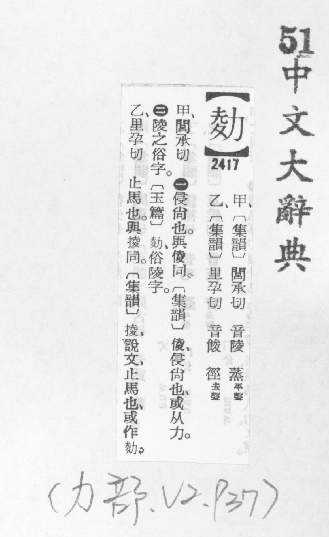 51中文大辭典
【勎】
2417
甲、〔集韻〕閭承切 音陵 蒸平聲
乙、〔集韻〕里孕切 音餕 徑去聲
甲、閭承切 ㊀侵尙也。與倰同。〔集韻〕倰、侵尙也、或从力。
㊁陵之俗字。〔玉篇〕勎、俗陵字。
乙、里孕切 止馬也。與掕同。〔集韻〕掕、說文、止馬也、或作勎。
(力部.V2.P37)